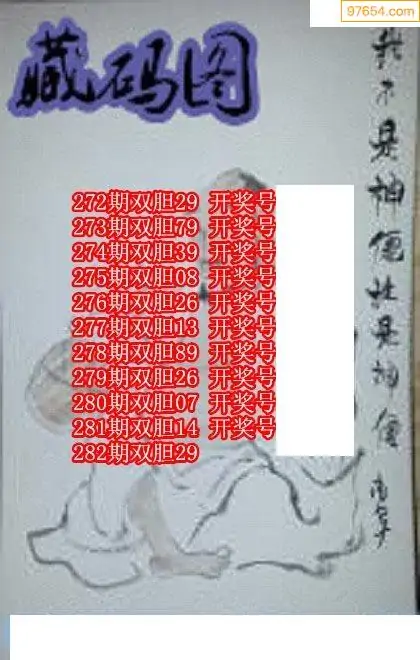 97654.com
藏码图
272期双胆29 开奖号
273期双胆79 开奖号
274期双胆39 开奖号
275期双胆08 开奖号
276期双胆26 开奖号
277期双胆13 开奖号
278期双胆89 开奖号
279期双胆26 开奖号
280期双胆07 开奖号
281期双胆14 开奖号
282期双胆29
是神
是神